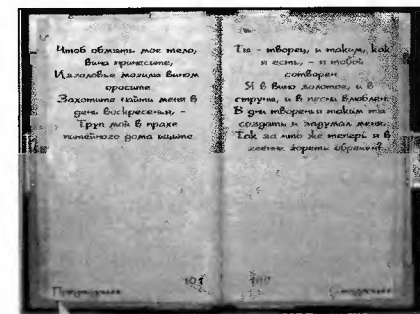 Чтоб обмыть мое тело,
вина принесите,
Изголовье могилы вином
оросите.
Захотите найти меня в
день воскресенья, -
Труп мой в прахе
питейного дома ищите.
Ты - творец, и таким, как
я есть, - я тобой
сотворен.
Я в вино золотое, и в
струны, и в песни влюблен.
В дни творенья таким ты
создать и задумал меня.
Так за что же теперь я в
геенне гореть обречен?
101